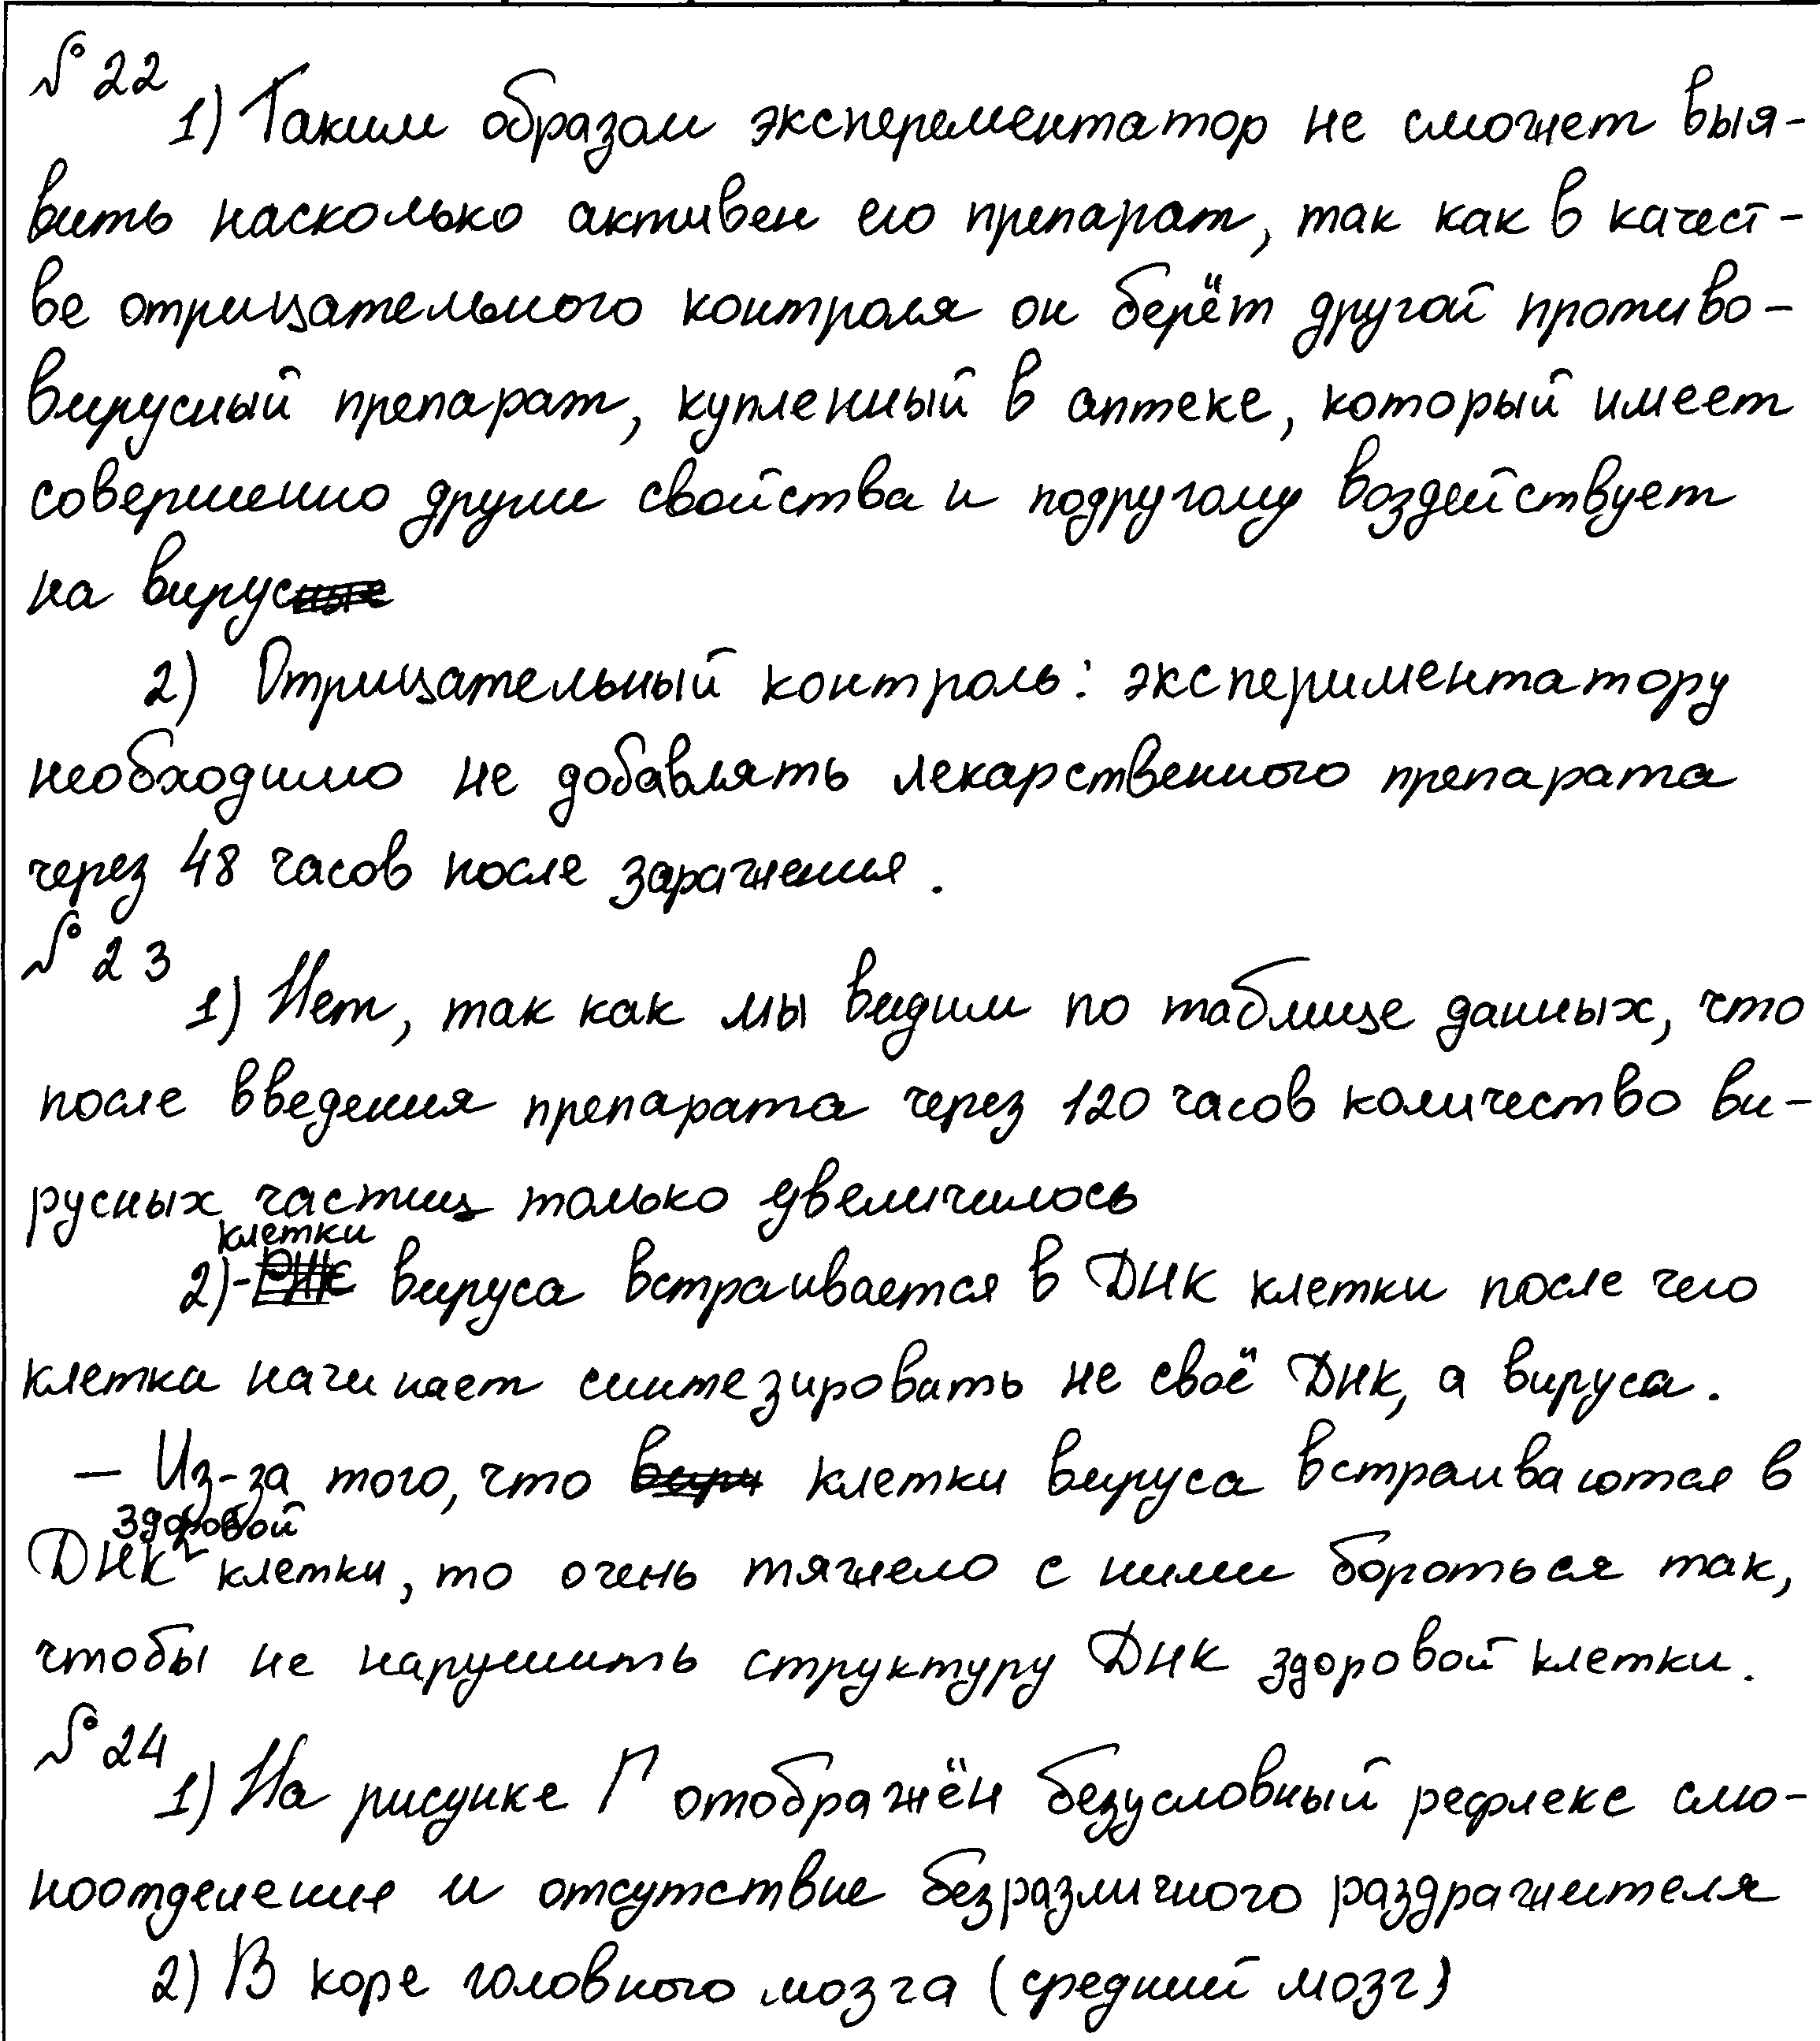 № 22
1) Таким образом эксперементатор не сможет выя-
вить насколько активен его препарат, так как в качест-
ве отрицательного контроля он берёт другой противо-
вирусный препарат, купленный в аптеке, который имеет
совершенно други свойства и подругому воздействует
на вирус
2) Отрицательный контроль: экспериментатору
необходимо не добавлять лекарственного препарата
через 48 часов после заражения.
№ 23
1) Нет, так как мы видим по таблице данных, что
после введения препарата через 120 часов количество ви-
русных частиц только увеличилось
клетки
2)- РНК вируса встраивается в ДНК клетки после чего
клетка начинает синтезировать не своё ДНК, а вируса.
— Из-за того, что клетки вируса встраиваются в
здоровой
ДНК клетки, то очень тяжело с ними бороться так,
чтобы не нарушить структуру ДНК здоровой клетки.
№ 24
1) На рисунке Г отображён безусловный рефлекс слю-
ноотделения и отсутствие безразличного раздражителя
2) В коре головного мозга (средний мозг)